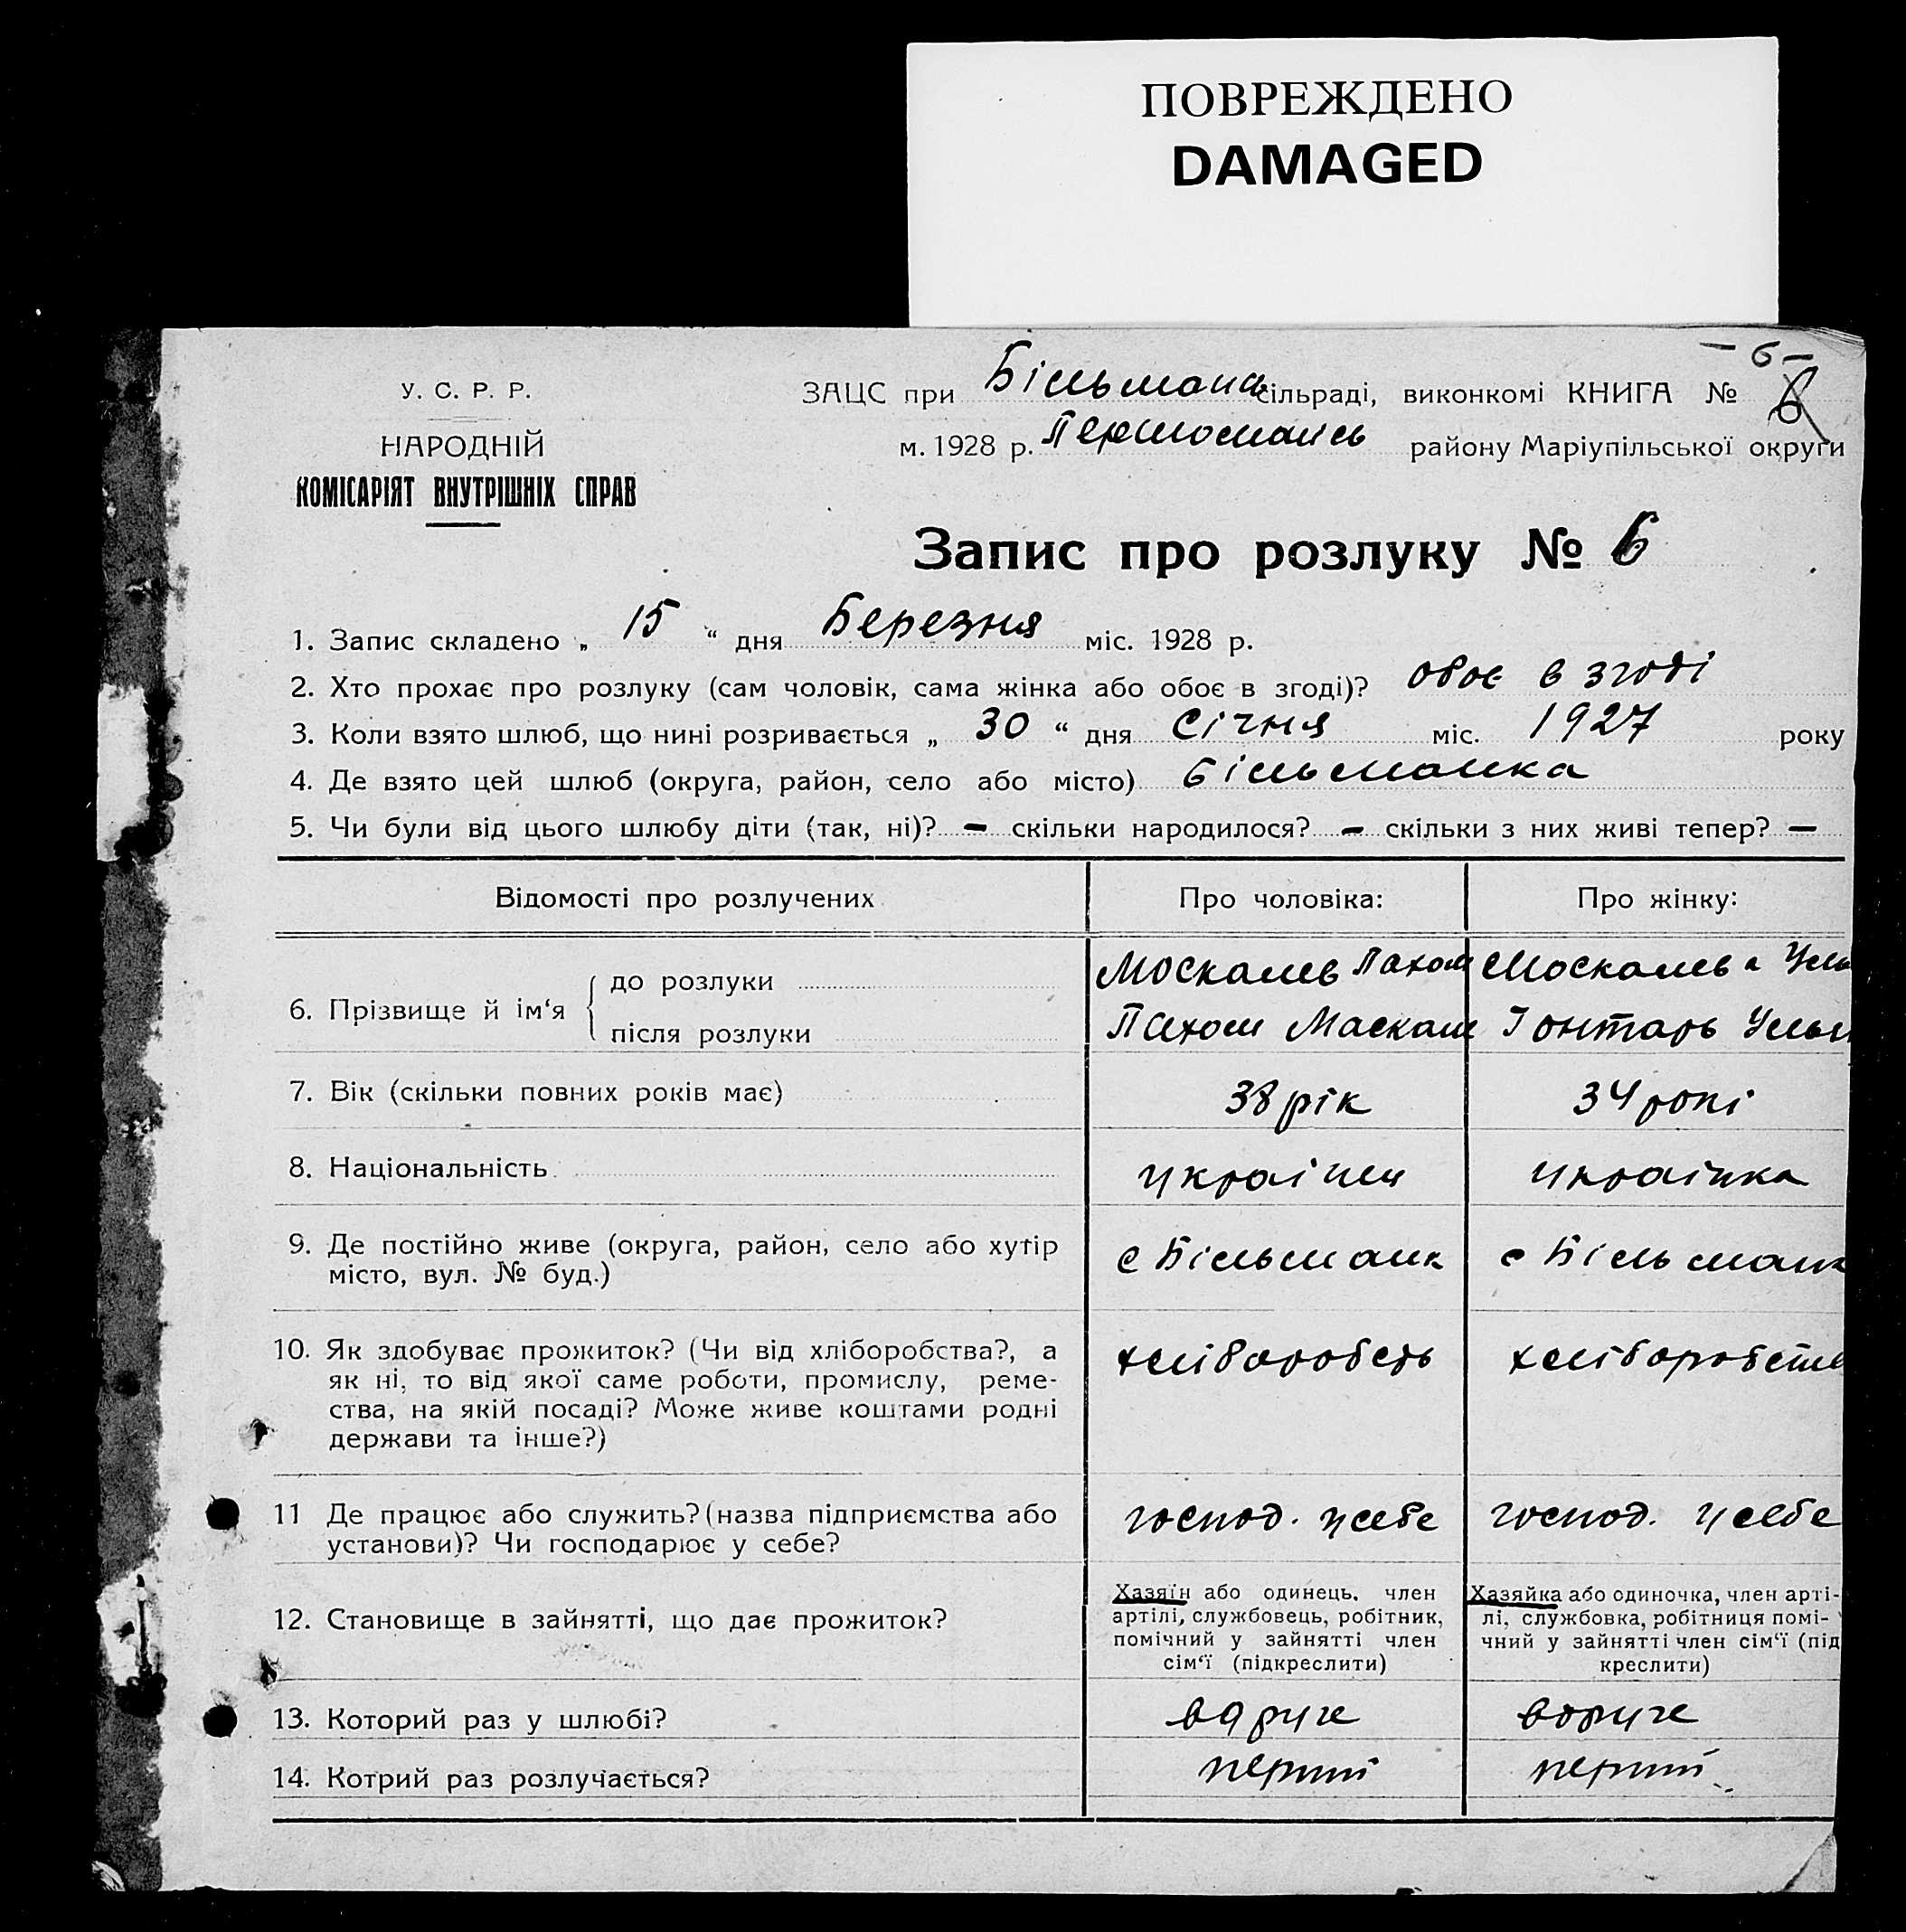 ПОВРЕЖДЕНО
DAMAGED
– 6 –
У. С. Р. Р.
НАРОДНІЙ
КОМІСАРІЯТ ВНУТРІШНІХ СПРАВ
ЗАЦС при Більманс сільраді, виконкомі КНИГА № 6
м. 1928 р. Першомайсь району Маріупільської округи
Запис про розлуку № 6
1. Запис складено „ 15 “ дня Березня міс. 1928 р.
2. Хто прохає про розлуку (сам чоловік, сама жінка або обоє в згоді)? обоє в згоді
3. Коли взято шлюб, що нині розривається „ 30 “ дня Січня міс. 1927 року
4. Де взято цей шлюб (округа, район, село або місто) Більманка
5. Чи були від цього шлюбу діти (так, ні)? – скільки народилося? – скільки з них живі тепер? –
Відомості про розлучених Про чоловіка: Про жінку:
6. Прізвище й ім‘я
до розлуки Москалев Пахом Москалева Уль
після розлуки Пахом Маскал Гонтарь Ульян
7. Вік (скільки повних років має) 38 рік 34 рокі
8. Національність українец українка
9. Де постійно живе (округа, район, село або хутір
місто, вул. № буд.) с Більманк с Більманк
10. Як здобуває прожиток? (Чи від хліборобства?, а
як ні, то від якої саме роботи, промислу, реме-
ства, на якій посаді? Може живе коштами родні
держави та інше?)
хліборобсть хліборобств
11 Де працює або служить? (назва підприємства або
установи)? Чи господарює у себе?
господ. у себе господ. у себе
12. Становище в зайнятті, що дає прожиток?
Хазяїн або одинець, член
артілі, службовець, робітник,
помічний у зайнятті член
сім‘ї (підкреслити)
Хазяйка або одиночка, член арті-
лі, службовка, робітниця помі-
чний у зайнятті член сім‘ї (під
креслити)
13. Которий раз у шлюбі? вдруге вдруге
14. Котрий раз розлучається? перший перший